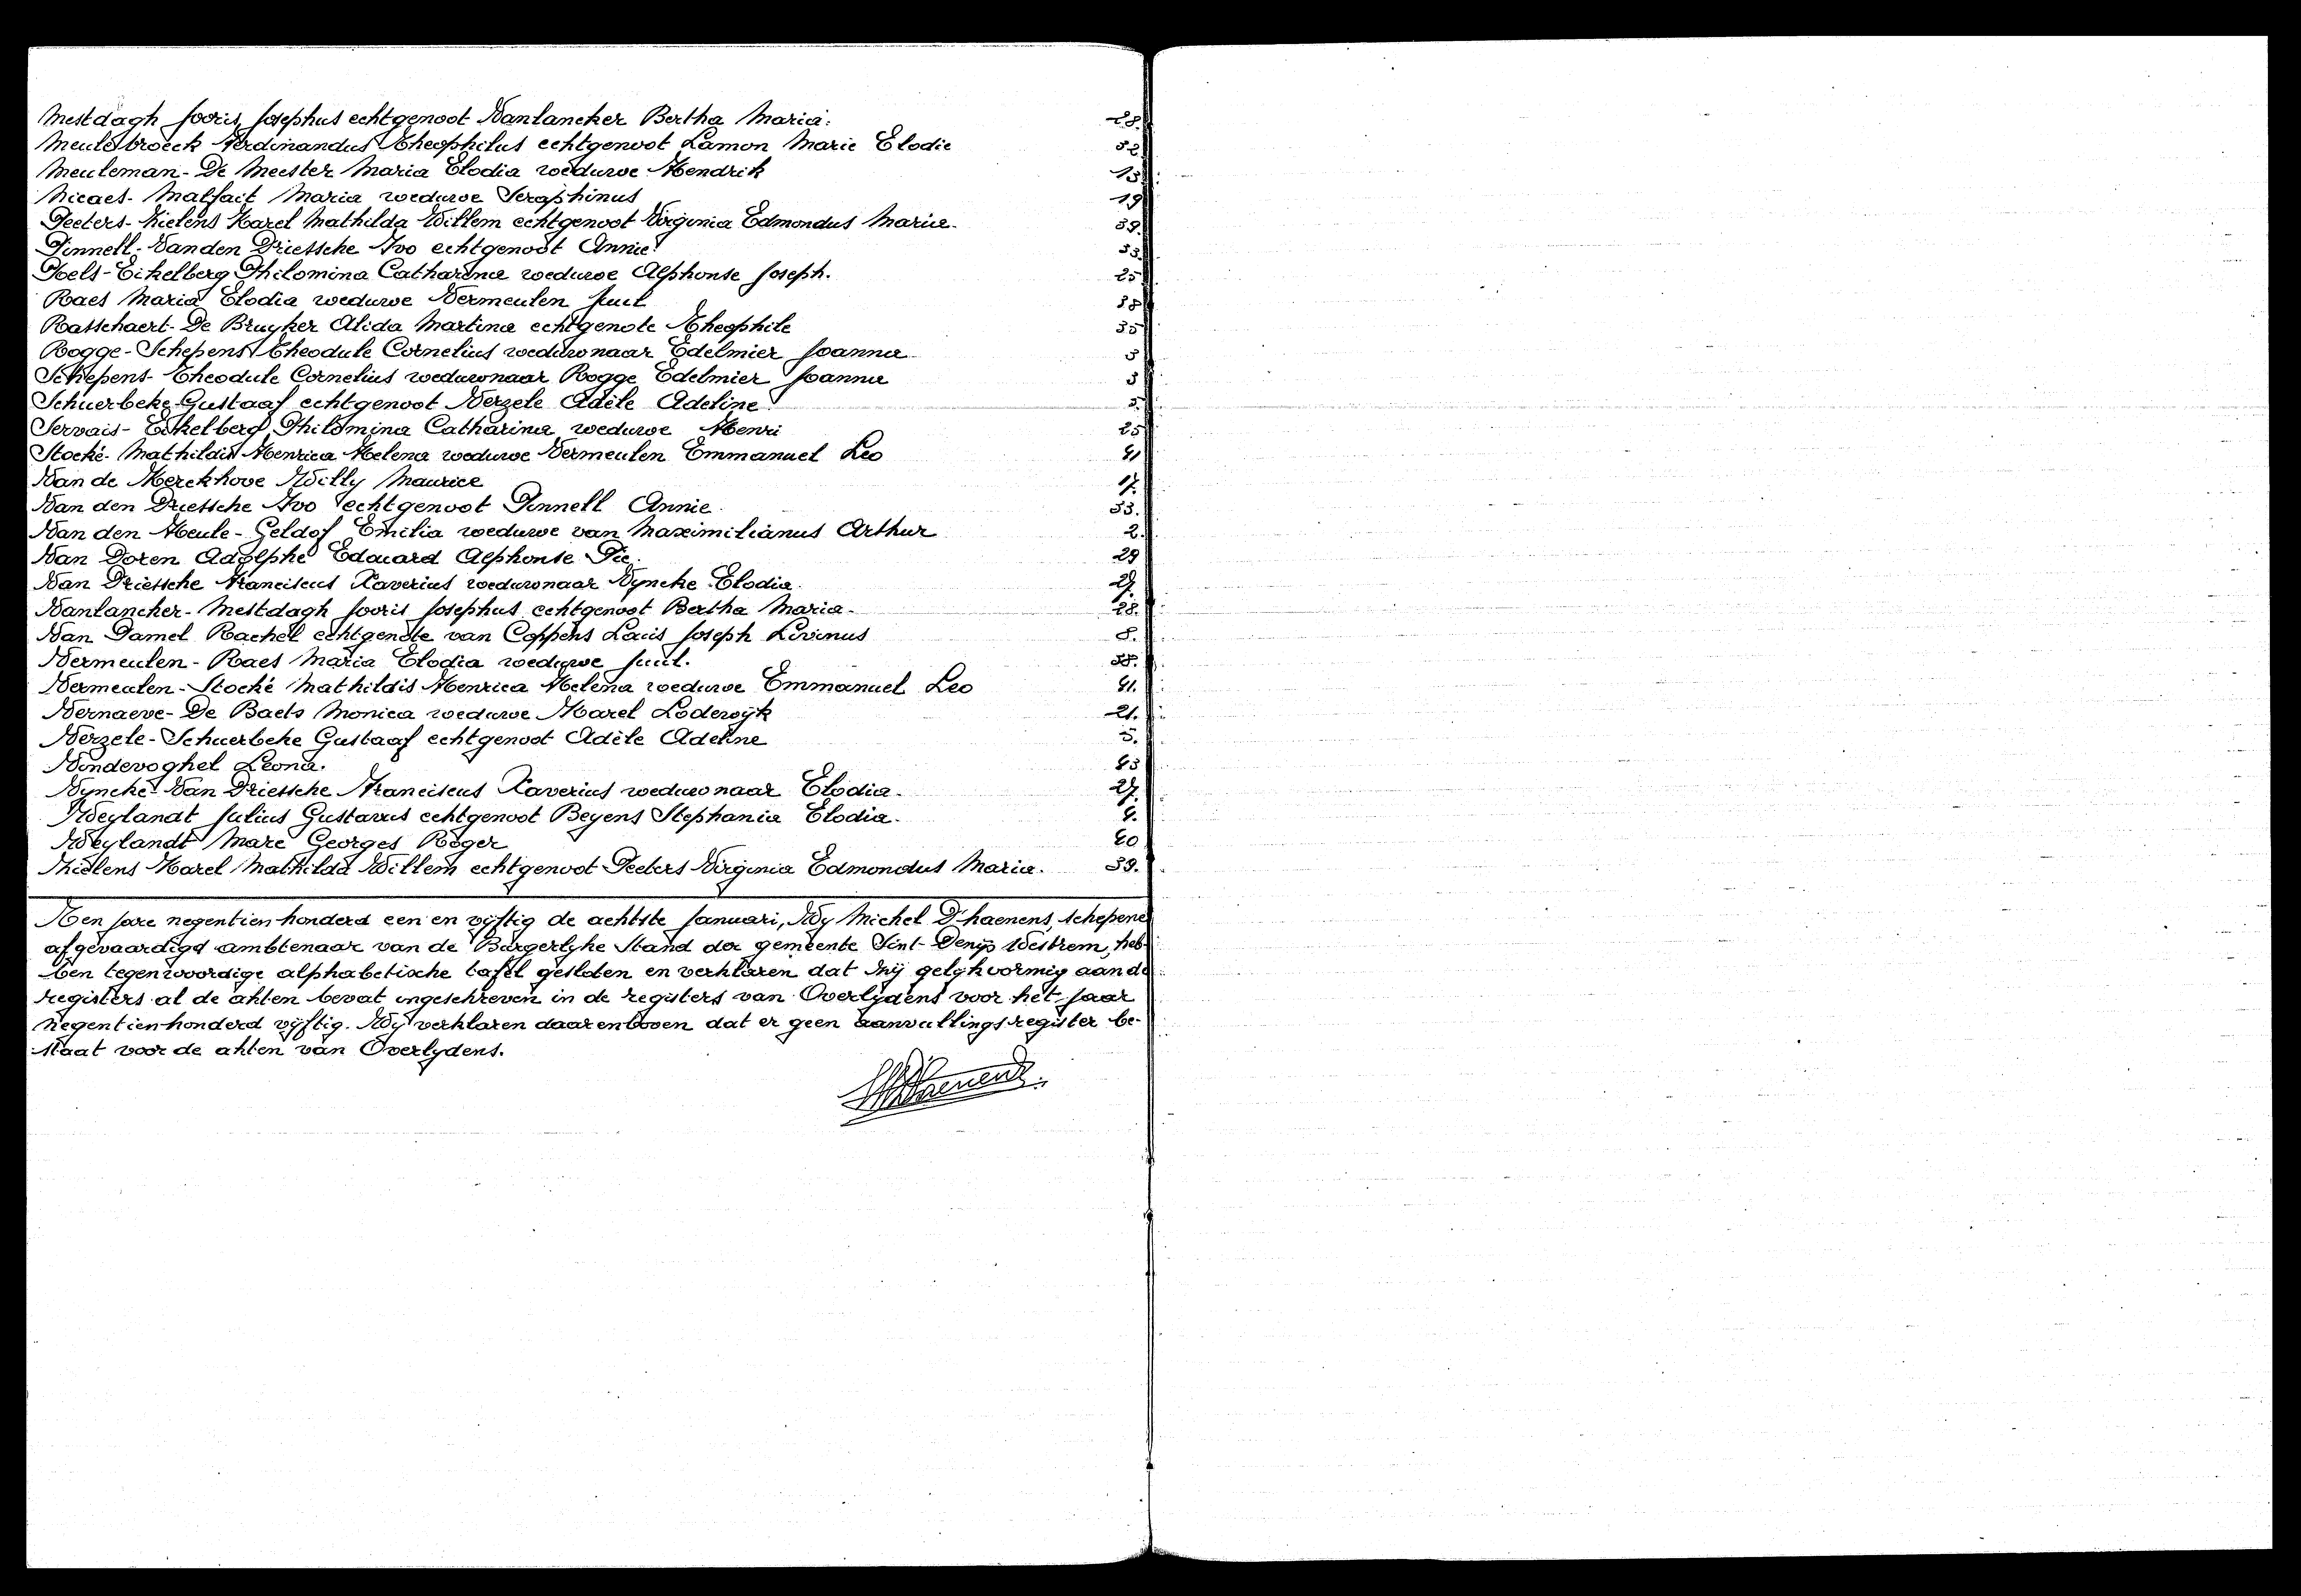 Mestdagh Jooris Josephus echtgenoot Vanlancker Bertha Maria. 28.
Meulebroeck Ferdinandus Theophilus echtgenoot Lamon Marie Elodie 32
Meuleman - De Meester Maria Elodia weduwe Hendrik 13
Nicaes - Malfait Maria weduwe Seraphinus 19
Peeters - Thielens Karel Mathilda Willem echtgenoot Virginia Edmondus Maria. 39.
Pinnell - Van den Driessche Ivo echtgenoot Annie. 33.
Poels - Eikelberg Philomina Catharina weduwe Alphonse Joseph. 25
Raes Maria Elodia weduwe Vermeulen Juul 38
Rasschaert - De Bruyker Alida Martina echtgenote Theophile 35
Rogge - Schepens Theodule Cornelius weduwnaar Edelmier Joanna 3
Schepens - Theodule Cornelius weduwnaar Rogge Edelmier Joanna 3
Schuerbeke - Gustaaf echtgenoot Verzele Adèle Adeline 5.
Servais - Eikelberg Philomina Catharina weduwe Henri 25
Stocké - Mathildis Henrica Helena weduwe Vermeulen Emmanuel Leo 41
Van de Kerckhove Willy Maurice 17.
Van den Driessche Ivo echtgenoot Pinnell Annie 33.
Van den Heule - Geldof Emilia weduwe van Maximilianus Arthur 2.
Van Doren Adolphe Edouard Alphonse Pie. 29
Van Driessche Franciscus Xaverius weduwnaar Vyncke Elodia. 27.
Vanlancker - Mestdagh Jooris Josephus echtgenoot Bertha Maria. 28.
Van Damel Rachel echtgenote van Coppens Louis Joseph Livinus 8.
Vermeulen - Raes Maria Elodia weduwe Juul. 38.
Vermeulen - Stocké Mathildis Henrica Helena weduwe Emmanuel Leo 41.
Vernaeve - De Baets Monica weduwe Karel Lodewyk 21.
Verzele - Schuerbeke Gustaaf echtgenoot Adèle Adeline 5.
Vondevoghel Leona. 43
Vyncke - Van Driessche Franciscus Xaverius weduwnaar Elodia. 27.
Weylandt Julius Gustavus echtgenoot Beyens Stephania Elodia. 4.
Weylandt Marc Georges Roger 40
Thielens Karel Mathilda Willem echtgenoot Peeters Virginia Edmondus Maria. 39.
Ten jare negentien honderd een en vyftig de achtste Januari, Wy Michel D'haenens, schepene
afgevaardigd ambtenaar van de Burgerlyke Stand der gemeente Sint-Denijs Westrem, heb-
ben tegenwoordige alphabetische tafel gesloten en verklaren dat zij gelykvormig aan de
registers al de akten bevat ingeschreven in de registers van Overlydens voor het jaar
negentienhonderd vyftig. Wij verklaren daarenboven dat er geen aanvullingsregister be-
staat voor de akten van Overlydens.